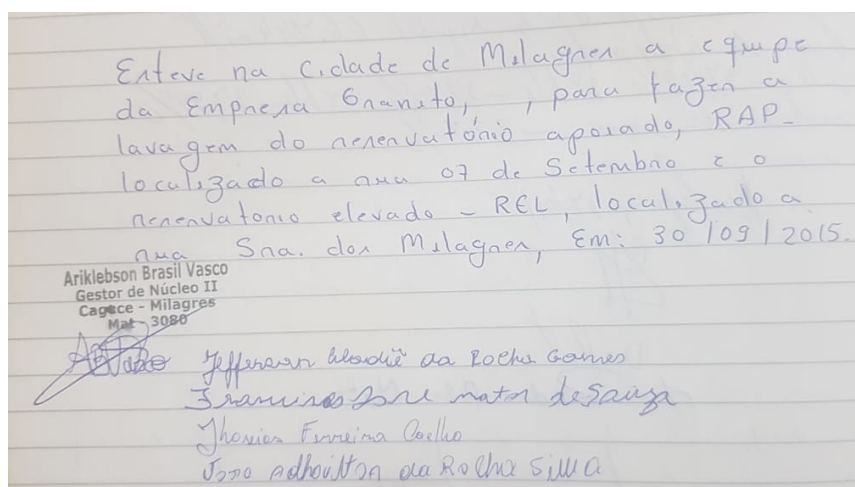 Esteve na cidade de Milagres a equipe
da Empresa Granito, , para fazer a
lavagem do reservatório apoiado, RAP-
localizado a rua 07 de Setembro e o
reservatorio elevado - REL, localizado a
rua Sra. dos Milagres, Em: 30/09/2015.
Ariklebson Brasil Vasco
Gestor de Núcleo II
Cagece - Milagres
Mat - 3080
Jefferson da Rocha Gomes
de Souza
Ferreira Coelho
da Rocha Silva